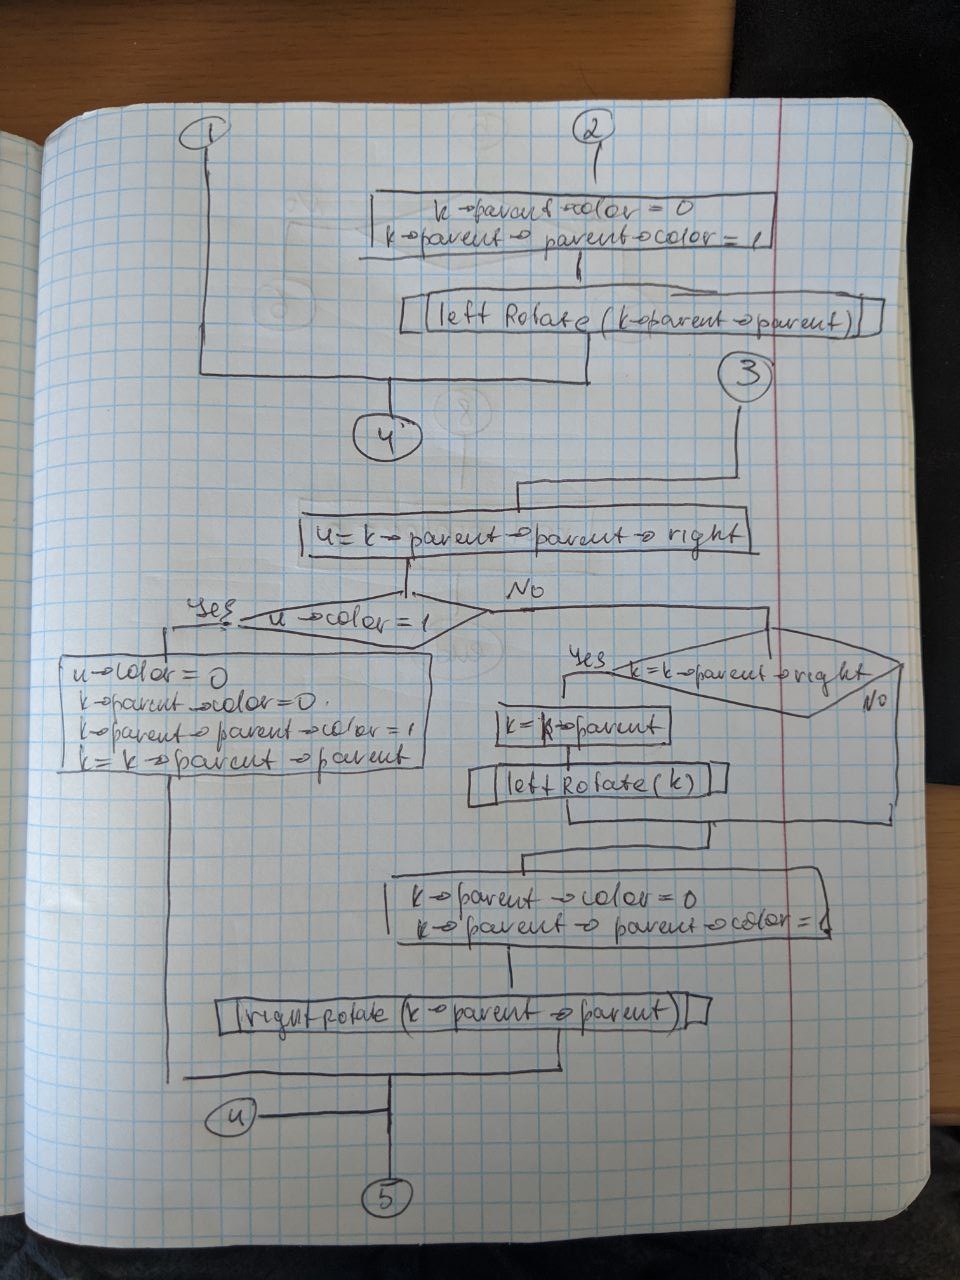 1
2
k→parent→color = 0
k→parent→parent→color = 1
leftRotate(k→parent→parent)
3
4
u = k→parent→parent→right
No
Yes
u→color = 1
Yes
k = k→parent→right
No
u→color = 0
k→parent→color = 0.
k→parent→parent→color = 1
k = k→parent→parent
k = k→parent
leftRotate(k)
k→parent→color = 0
k→parent→parent→color = 1
rightRotate(k→parent→parent)
4
5